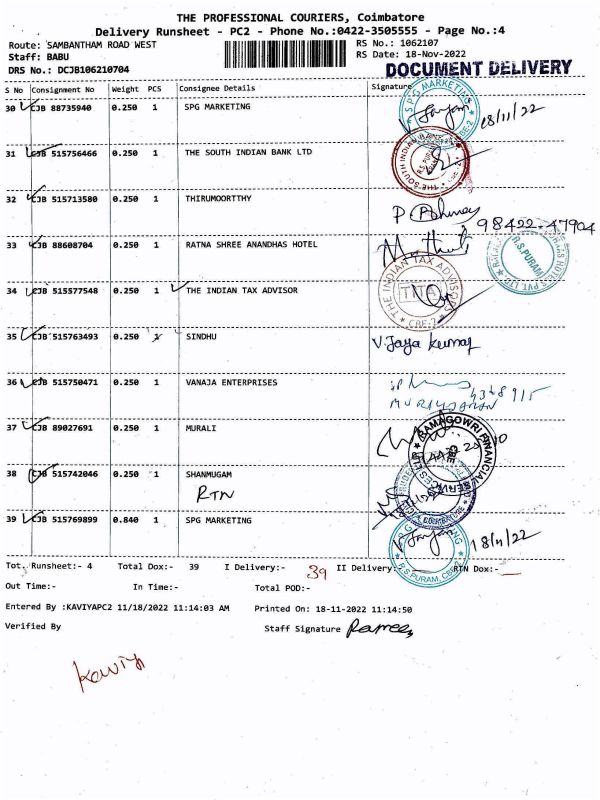 THE PROFESSIONAL COURIERS, Coimbatore
Delivery Runsheet - PC2 - Phone No.:0422-3505555 - Page No.:4
Route: SAMBANTHAM ROAD WEST RS No.: 1062107
Staff: BABU RS Date: 18-Nov-2022
DRS No.: DCJB106210704 DOCUMENT DELIVERY
S No Consignment No Weight PCS Consignee Details Signature
30 CJB 88735940 0.250 1 SPG MARKETING 18/11/22
SPG MARKETING
31 CJB 515756466 0.250 1 THE SOUTH INDIAN BANK LTD
THE SOUTH INDIAN
32 CJB 515713580 0.250 1 THIRUMOORTTHY
98422-47904
33 CJB 88608704 0.250 1 RATNA SHREE ANANDHAS HOTEL
R.S.PURAM
34 CJB 515577548 0.250 1 THE INDIAN TAX ADVISOR
THE INDIAN TAX ADVISORS
TITA
CBE-2
35 CJB 515763493 0.250 1 SINDHU V. Jaya kumar
36 CJB 515750471 0.250 1 VANAJA ENTERPRISES
37 CJB 89027691 0.250 1 MURALI
RAMAGOWRI FINANCIAL
38 CJB 515742046 0.250 1 SHANMUGAM
RTN
COIMBATORE
39 CJB 515769899 0.840 1 SPG MARKETING 18/11/22
R.S.PURAM, CBE-2
Tot. Runsheet:- 4 Total Dox:- 39 I Delivery:- 39 II Delivery:- RTN Dox:-
Out Time:- In Time:- Total POD:-
Entered By :KAVIYAPC2 11/18/2022 11:14:03 AM Printed On: 18-11-2022 11:14:50
Verified By Staff Signature
Kaviya